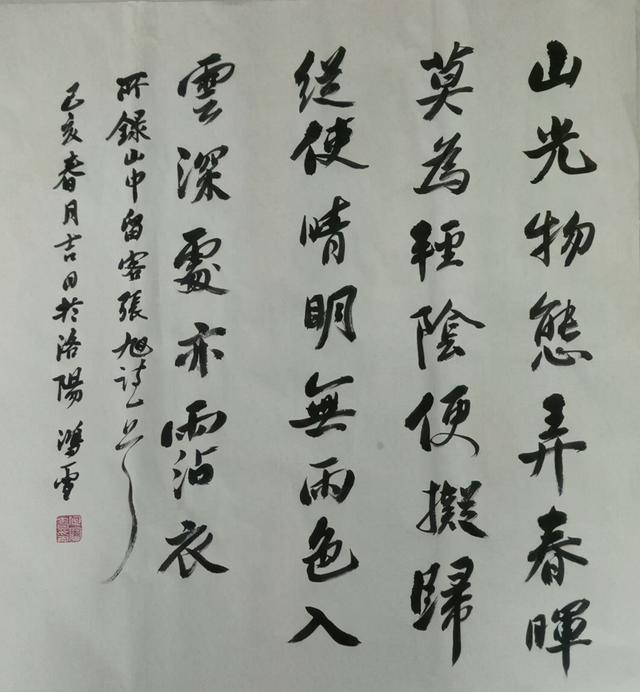 山光物態弄春暉
莫為輕陰便擬歸
縱使晴明無雨色入
雲深處亦雨沾衣
所錄山中留客張旭詩一首
己亥春月吉日於洛陽鴻雪